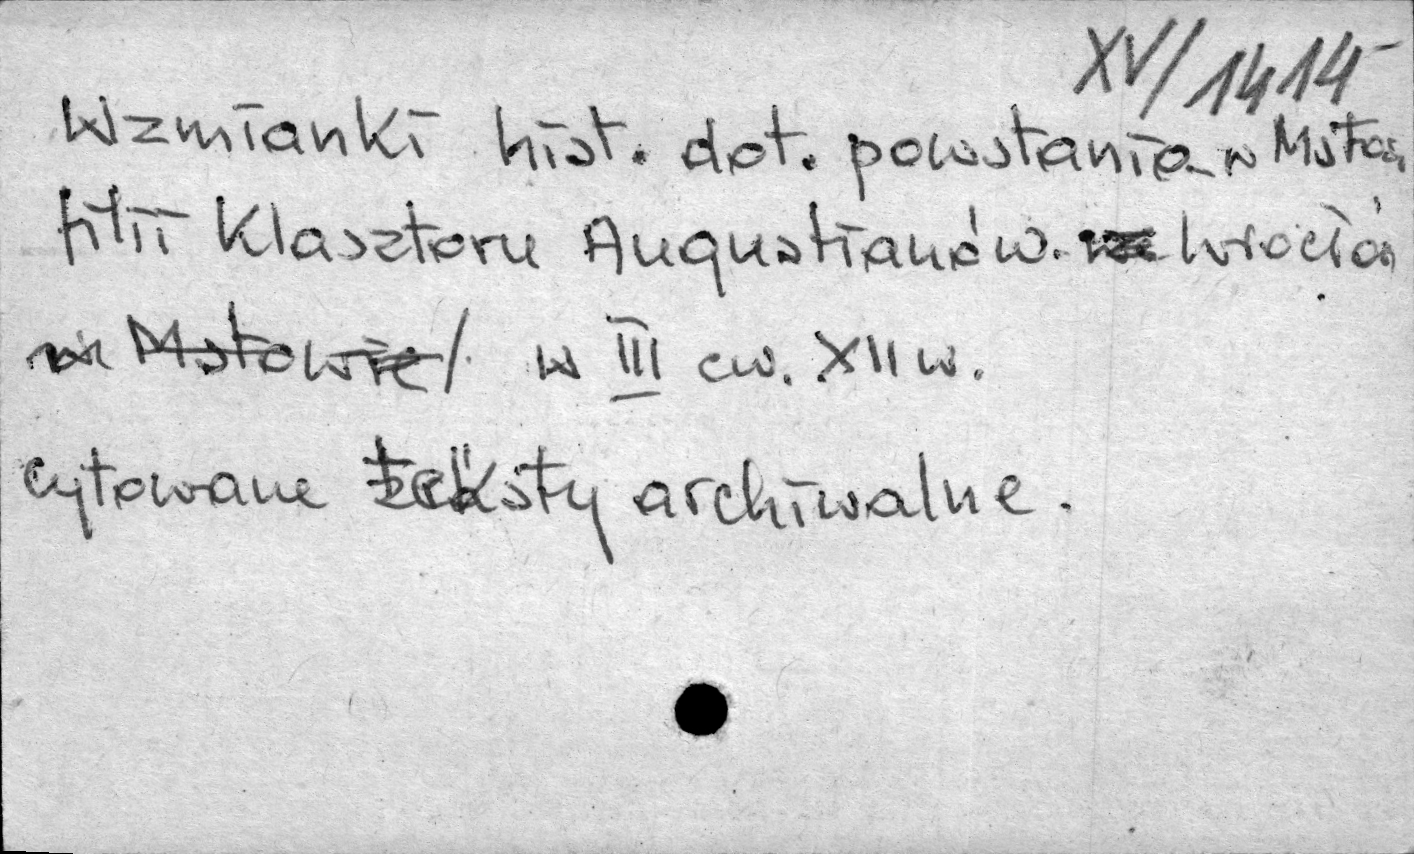 XV/1414
Wzmianki hist. dot. powstania w Mstow.
filii Klasztoru Augustianów. Wrocław
w Mstowie/. w III cw. XII w.
cytowane teksty archiwalne.